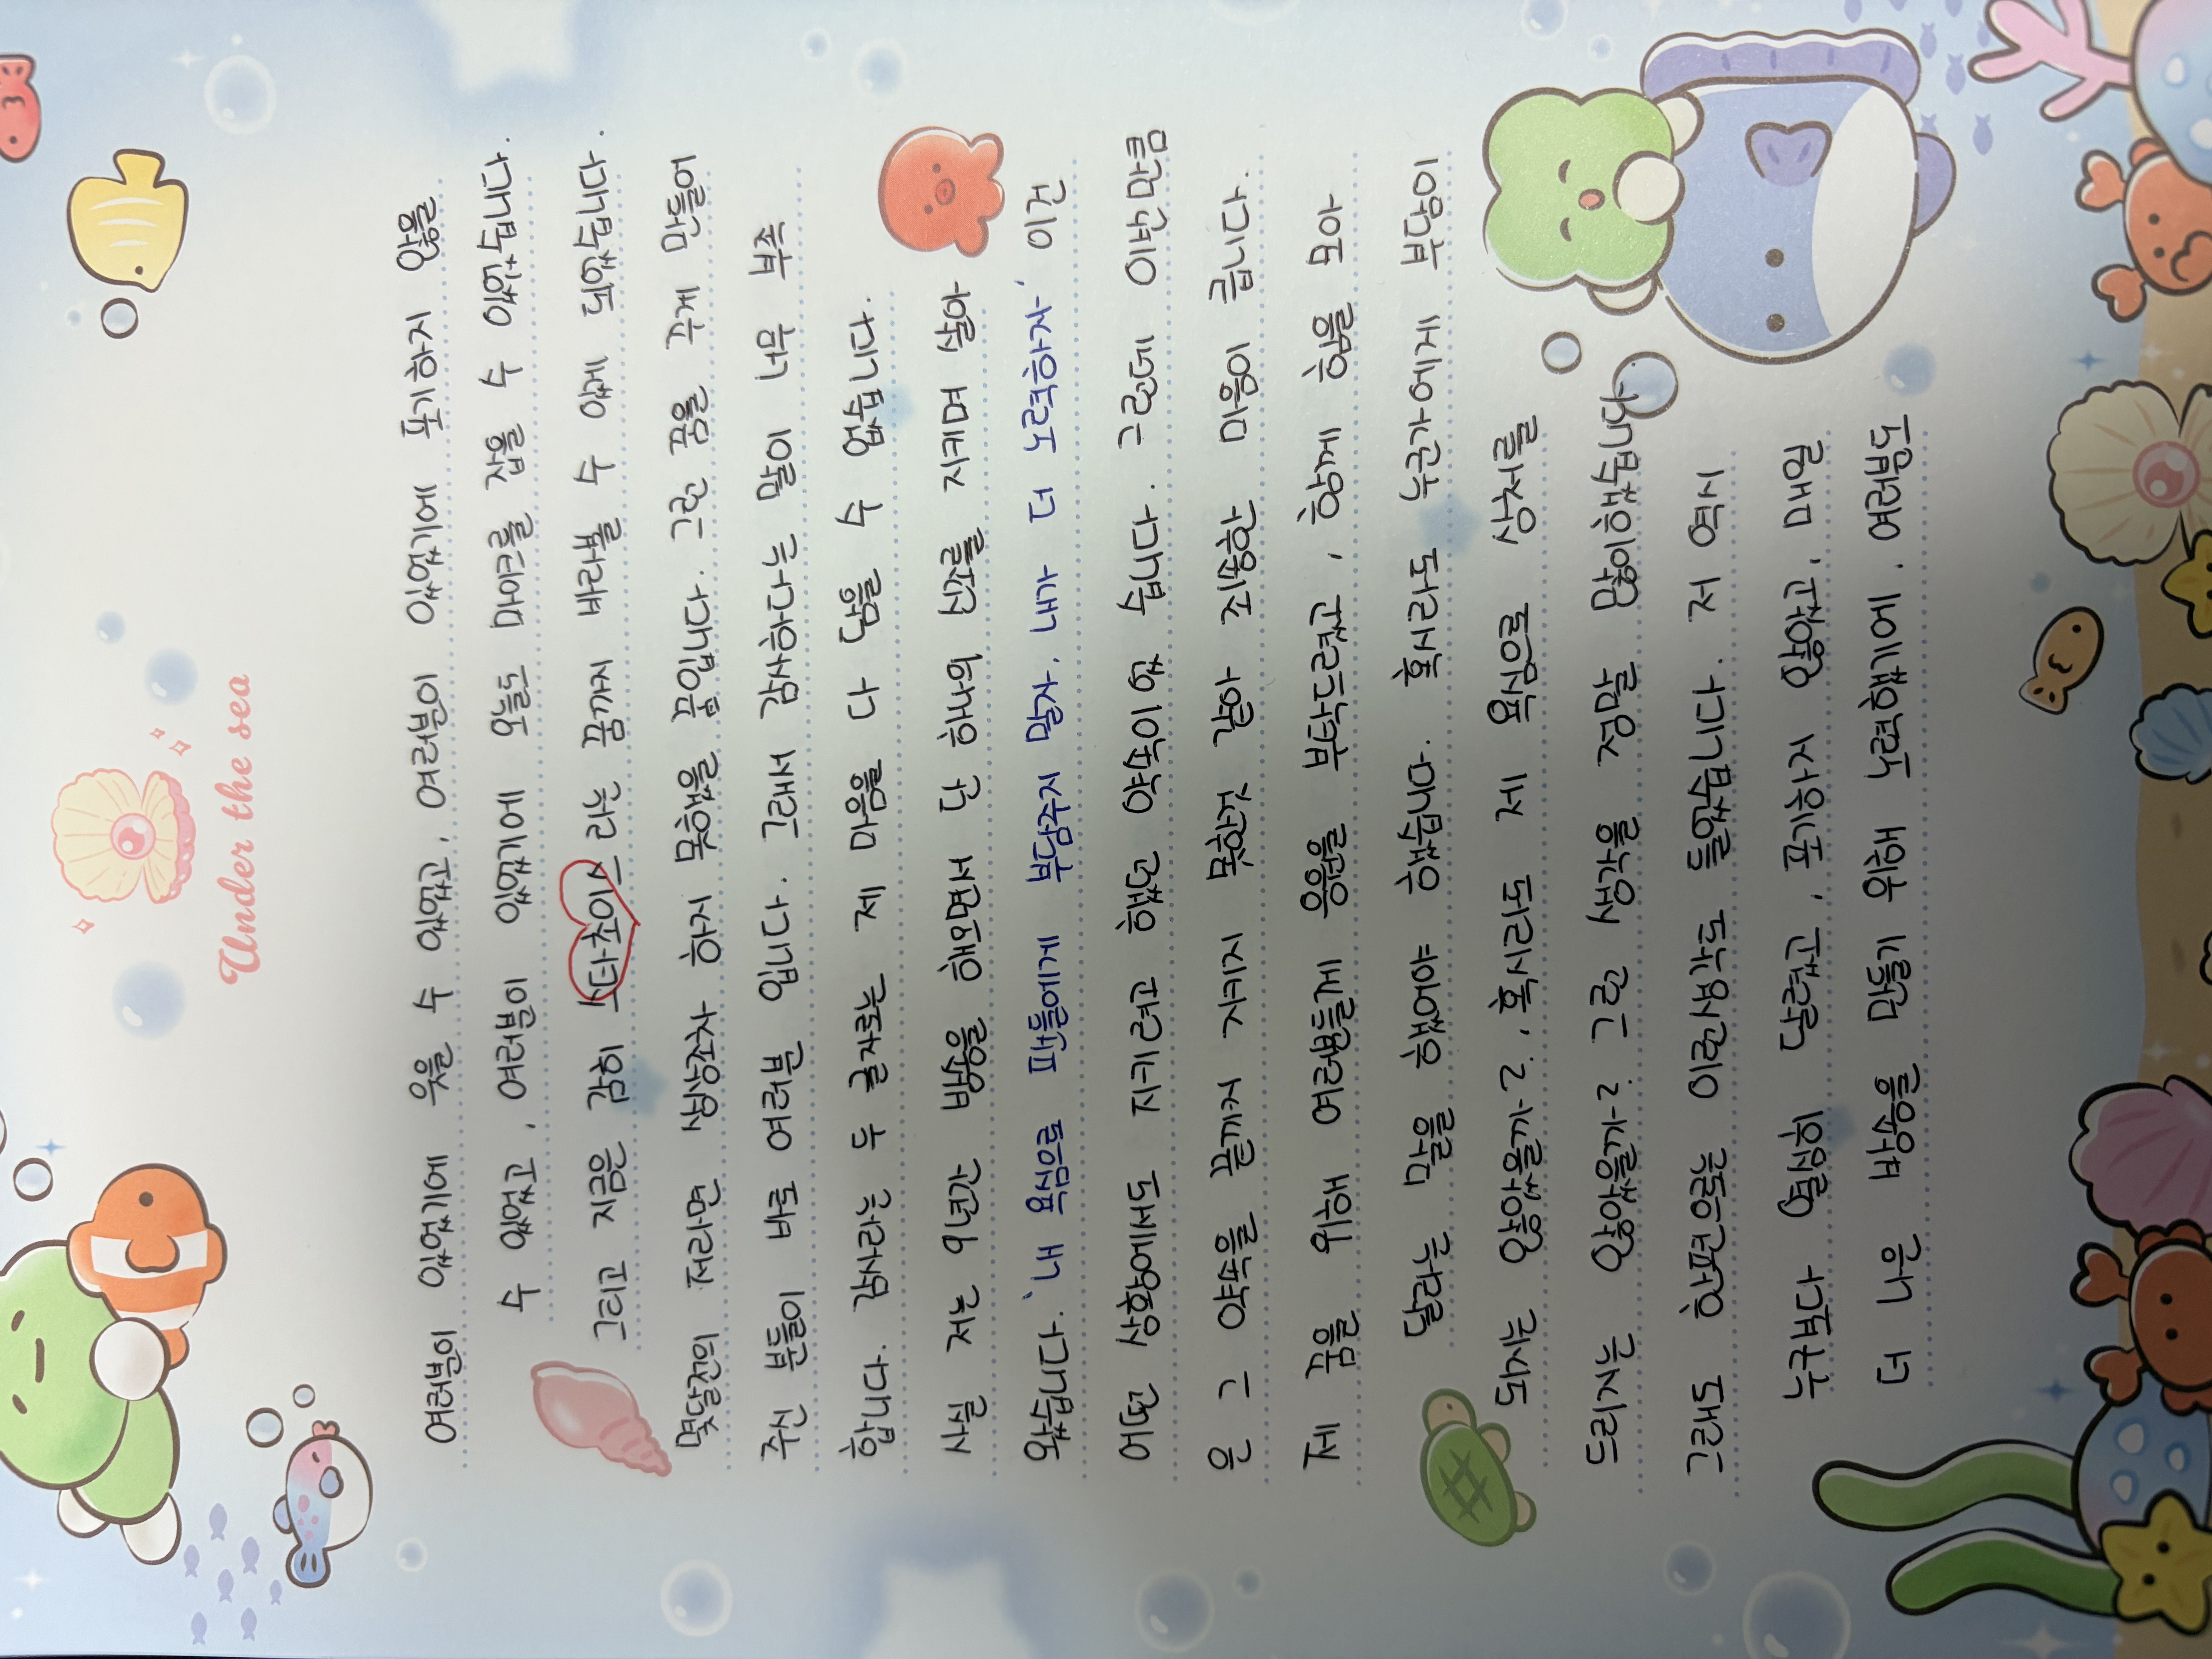 여러분이 있었기에 웃을 수 있었고, 여러분이 있었기에 포기하지 않을
수 있었고, 여러분이 있었기에 오늘도 마이크를 잡을 수 있었습니다.
그리고 지금은 감히 라는 꿈까지 바라볼 수 있게 되었습니다.
몇달전의 저라면 상상조차 하지 못했을 꿈입니다. 그런 꿈을 꾸게 만들어
주신 분들이 바로 여러분 입니다. 그래서 감사하다는 말이 너무 부족
합니다. 감사라는 두 글자로는 제 마음을 다 담을 수 없습니다.
사실 저는 6년간 방송을 해오면서 단 하나의 지키며 살아
왔습니다. '내 욕심으로 팬들에게 부담주지 말자. 내가 더 노력하자', 이건
어떤 상황에서도 지키려고 했던 약속이었습니다. 그런데 이번만큼
은 그 약속을 끝까지 지키지 못할것 같아 죄송한 마음이 큽니다.
제 꿈을 위해 여러분들께 응원을 부탁드렸고, 후원을 도와
달라는 말을 했어야 했습니다. 혹시라도 누군가에게 부담이
되지는 않았을까?, 혹시라도 제 욕심으로 상처를
드리지는 않았을까? 그런 생각을 정말 많이했습니다.
그래도 한편으론 이런생각도 들었습니다. 저 역시
누구보다 열심히 달렸고, 포기하지 않았고, 매일
더 나은 방송을 위해 노력했기에. 여러분도
Under the sea